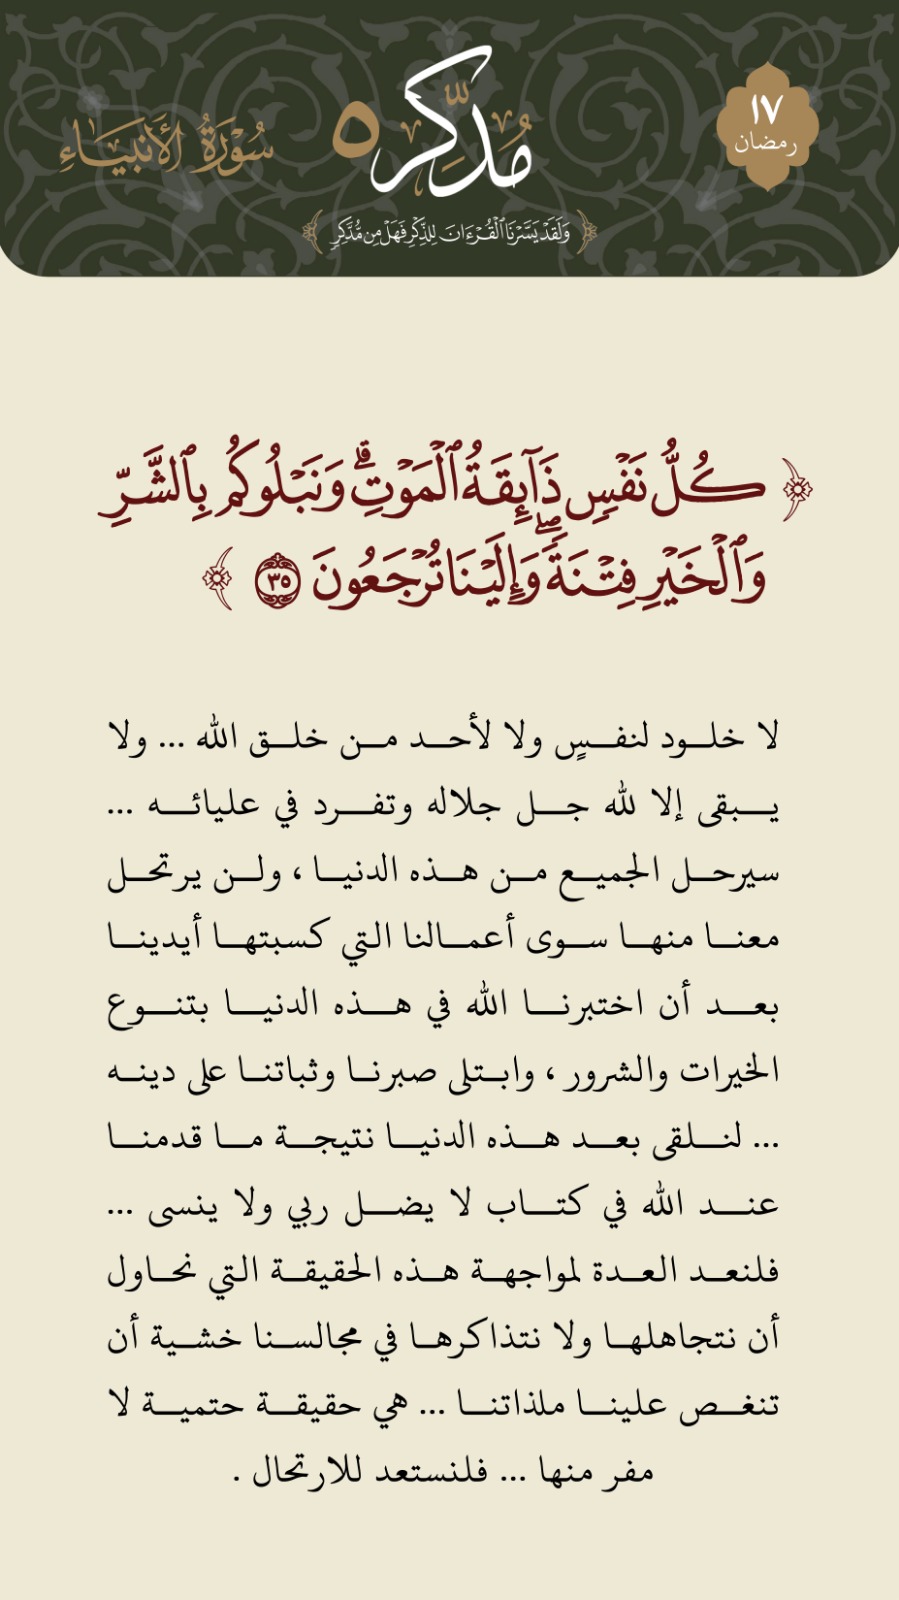 ١٧
رمضان
مُدَّكِر ٥
سُورَةُ الأَنبِيَاءِ
وَلَقَدْ يَسَّرْنَا ٱلْقُرْءَانَ لِلذِّكْرِ فَهَلْ مِن مُّدَّكِرٍ
﴿ كُلُّ نَفْسٍ ذَآئِقَةُ ٱلْمَوْتِۗ وَنَبْلُوكُم بِٱلشَّرِّ
وَٱلْخَيْرِ فِتْنَةًۖ وَإِلَيْنَا تُرْجَعُونَ ٣٥ ﴾
لا خلود لنفسٍ ولا لأحد من خلق الله ... ولا
يبقى إلا لله جل جلاله وتفرد في عليائه ...
سيرحل الجميع من هذه الدنيا ، ولن يرتحل
معنا منها سوى أعمالنا التي كسبتها أيدينا
بعد أن اختبرنا الله في هذه الدنيا بتنوع
الخيرات والشرور ، وابتلى صبرنا وثباتنا على دينه
... لنلقى بعد هذه الدنيا نتيجة ما قدمنا
عند الله في كتاب لا يضل ربي ولا ينسى ...
فلنعد العدة لمواجهة هذه الحقيقة التي نحاول
أن نتجاهلها ولا نتذاكرها في مجالسنا خشية أن
تنغص علينا ملذاتنا ... هي حقيقة حتمية لا
مفر منها ... فلنستعد للارتحال .